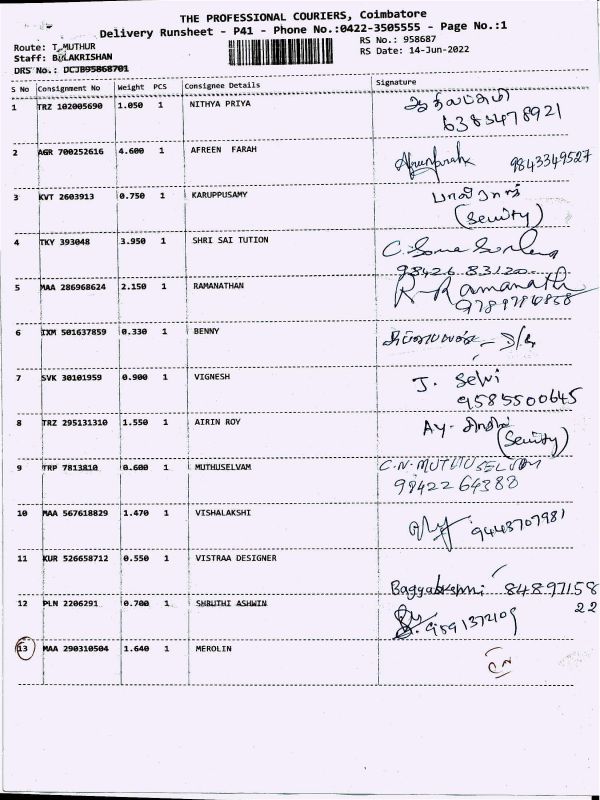 THE PROFESSIONAL COURIERS, Coimbatore
Delivery Runsheet - P41 - Phone No.:0422-3505555 - Page No.:1
Route: T_MUTHUR
RS No.: 958687
Staff: BALAKRISHAN
RS Date: 14-Jun-2022
DRS No.: DCJB95868701
S No Consignment No Weight PCS Consignee Details Signature
1 TRZ 102005690 1.050 1 NITHYA PRIYA
6383478921
2 AGR 700252616 4.600 1 AFREEN FARAH
Afreenfarah 9843349527
3 KVT 2603913 0.750 1 KARUPPUSAMY
4 TKY 393048 3.950 1 SHRI SAI TUTION
98426 83120
5 MAA 286968624 2.150 1 RAMANATHAN
R-Ramanath
6 IXM 501637859 0.330 1 BENNY
7 SVK 30101959 0.900 1 VIGNESH
J. Selvi
9585500645
8 TRZ 295131310 1.550 1 AIRIN ROY
9 TRP 7813810 0.600 1 MUTHUSELVAM
C.N. MUTHUSELVAM
9942264388
10 MAA 567618829 1.470 1 VISHALAKSHI
9443707981
11 KUR 526658712 0.550 1 VISTRAA DESIGNER
8489715822
12 PLN 2206291 0.700 1 SHRUTHI ASHWIN
9591372109
13 MAA 290310504 1.640 1 MEROLIN